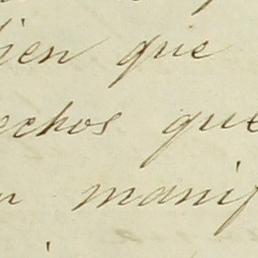 bien que
echos que
manif